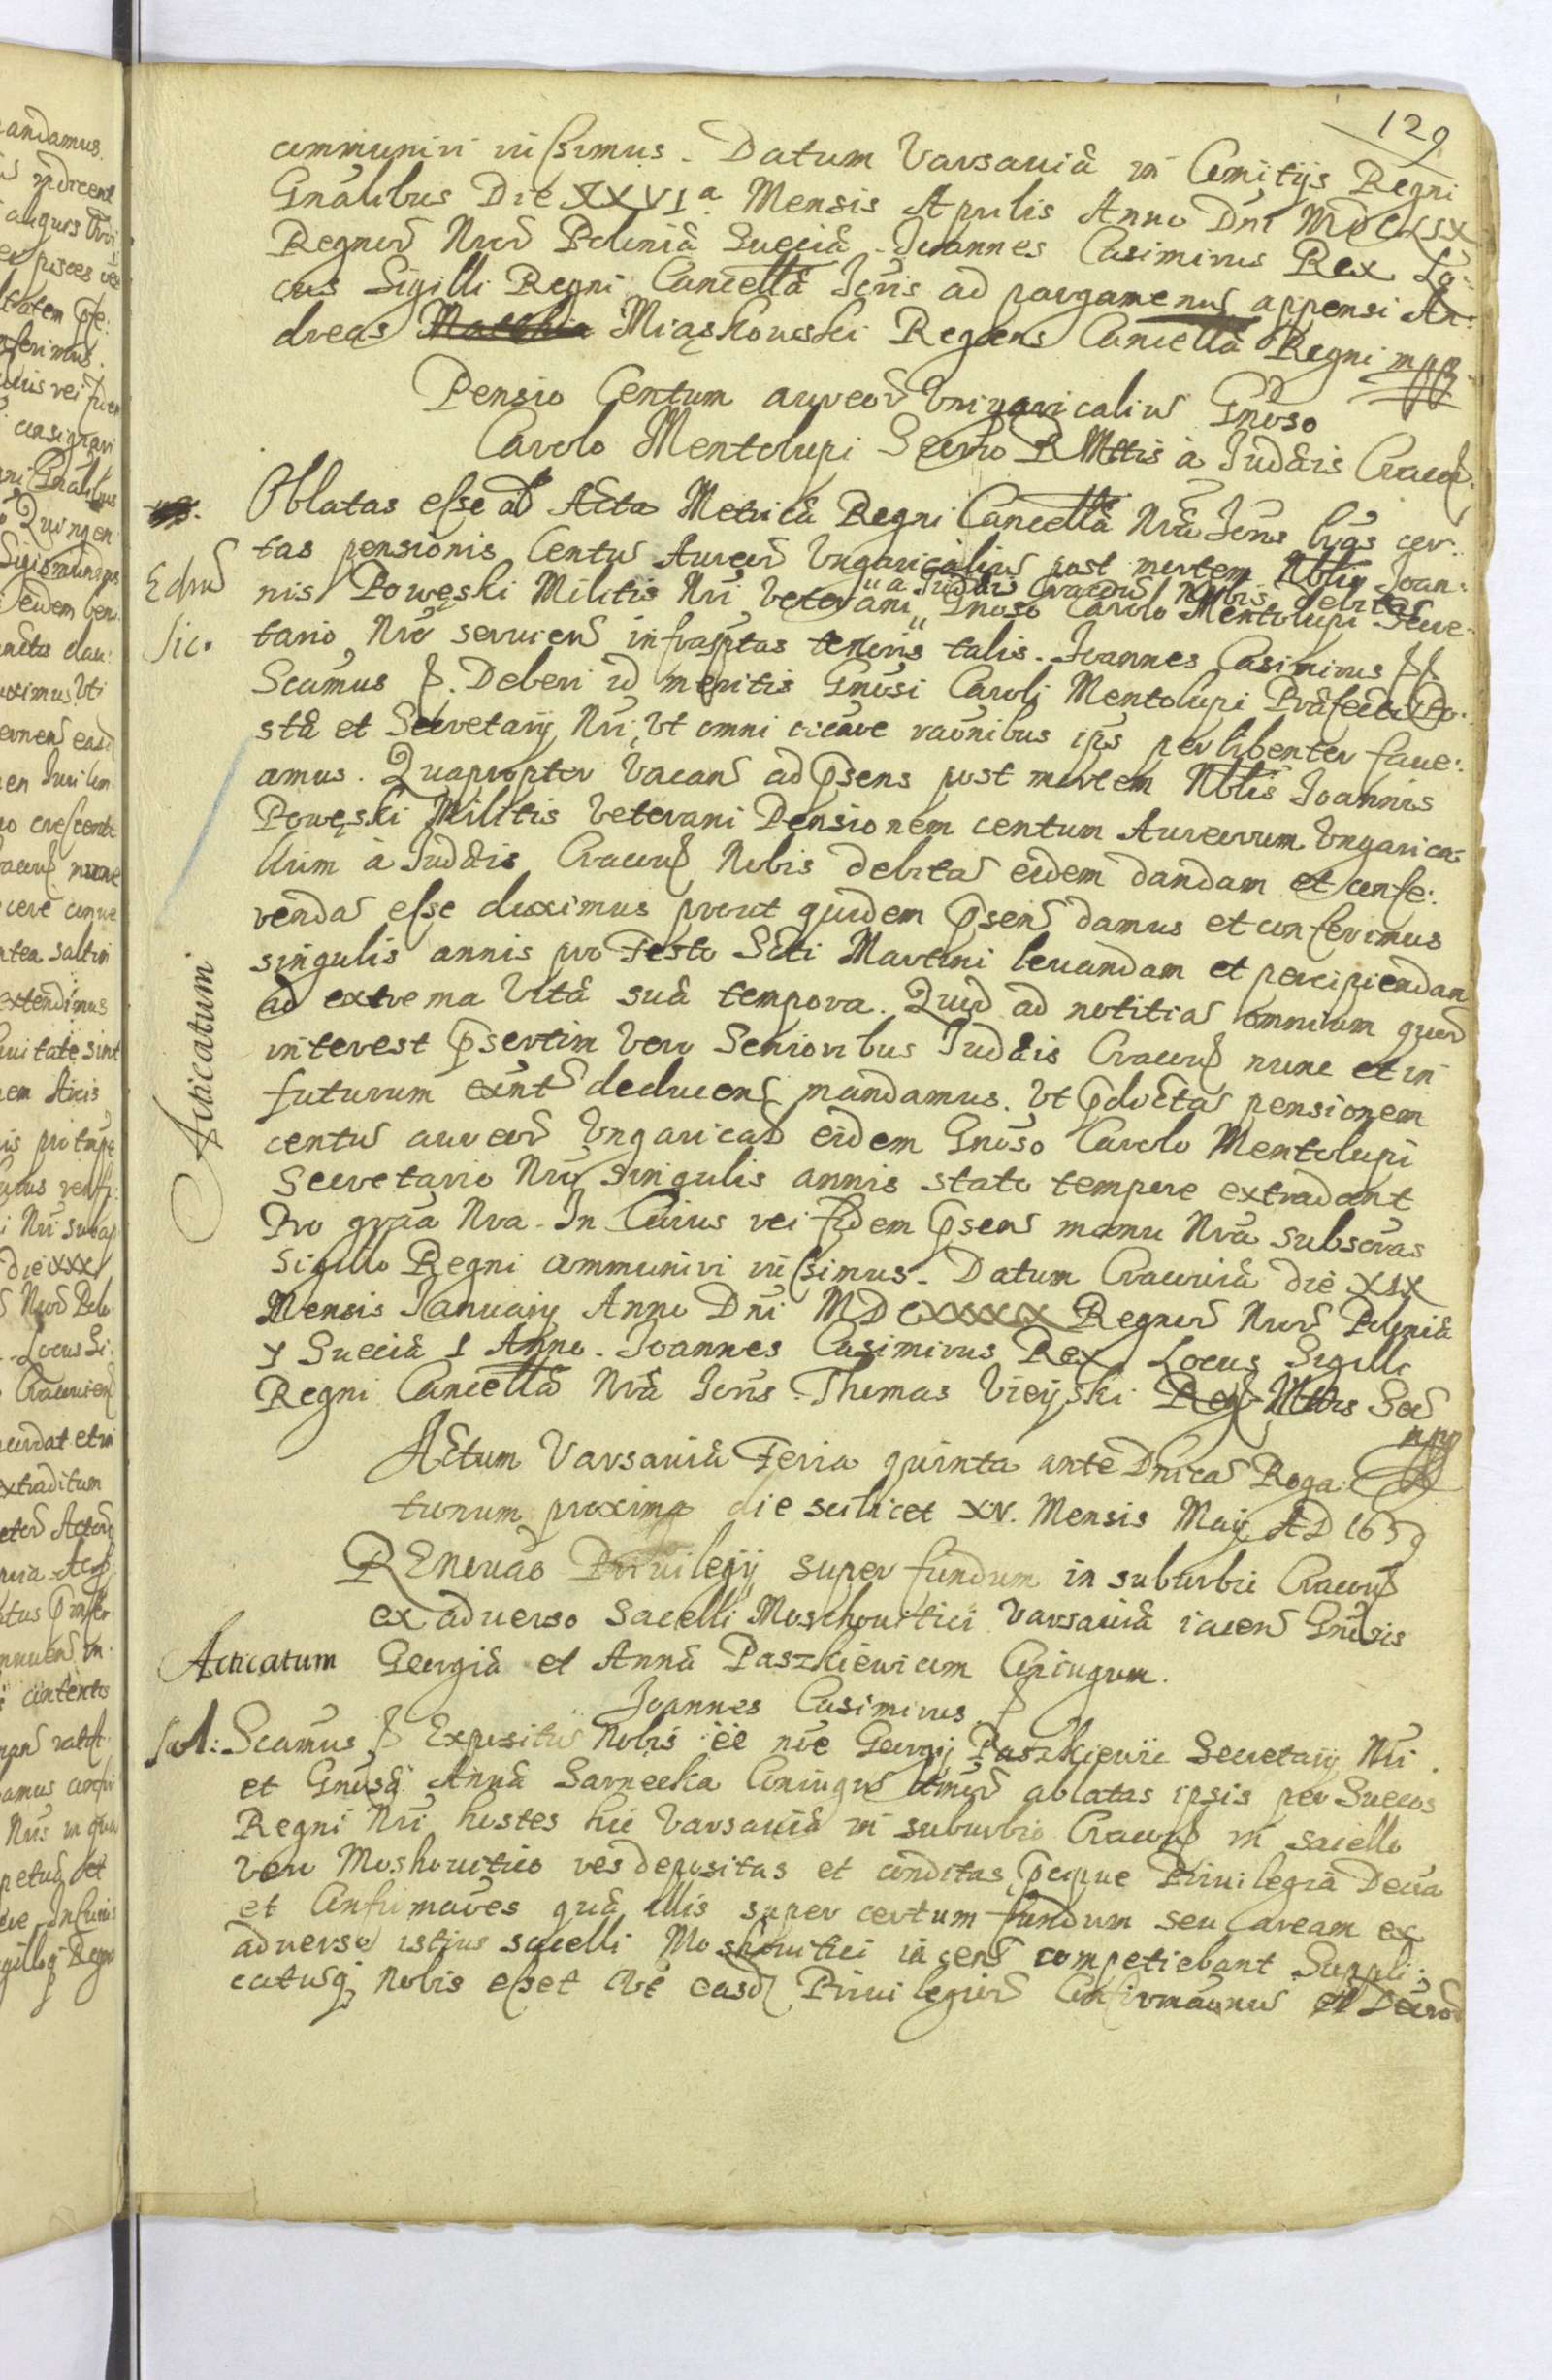 129
communiri iussimus. Datum Varsaviæ in Comitijs Regni
Gnalibus Die XXVIa. Mensis Aprilis Anno Dni MDCLIX
Regnor Nror Poloniæ Sueciæ. Joannes Casimirus Rex Lo:
cus Sigilli Regni Cancellæ Ioris ad pargamenus appensi An:
dreas Miąskowski Regens Cancellæ Regni mpp
Pensio Centum aureor Vngaricaliu Gnoso
Carolo Montolupi Secrio R Mttis à Judæis Cracou
Oblatas esse ad Acta Metricæ Regni Cancellæ Nræ Ioris lras cer:
tas pensionis Centu Aureor Vngaricaliu post mortem Nblis Joan:
nis Powęski Militis Nri Veterani à Judæis Cracou Nobis debitæ Gnoso Carolo Montolupi Secre
tario Nro seruien infrasptas tenoris talis. Joannes Casimirus
Scamus. Deberi id meritis Gnosi Caroli Montolupi Præfecti Po:
stæ et Secretarij Nri, Vt omni rationibus ipis perlibenter faue:
amus. Quapropter Vacan ad psens post mortem Nblis Joannis
Powęski Militis Veterani Pensionem centum Aureorum Vngarica
lium à Judæis Cracou Nobis debita eidem dandam et confe:
renda esse duximus prout quidem psen damus et conferimus
singulis annis pro Festo Scti Martini leuandam et percipiendam
ad extrema Vitæ suæ tempora. Quod ad notitia omnium quor
interest psertim vero Senioribus Judæis Cracou nunc et in
futurum exnt deducen mandamus. Vt pdicta pensionem
centu aureor Vngarical eidem Gnoso Carolo Montolupi
Secretario Nro singulis annis stato tempore extradant
Pro graa Nra. In Cuius rei fidem psens manu Nra subscras
Sigillo Regni communiri iussimus. Datum Cracouiæ die XIX
Mensis Januarij Anno Dni MDCXXXXIX Regnor Nror Poloniæ
I Sueciæ I Anno. Joannes Casimirus Rex Locus Sigilli
Regni Cancellæ Nræ Ioris. Thomas Vieyski Mttis Sec
mpp
Actum Varsauiæ Feria quinta ante Dnica Roga:
tionum proxima die scilicet XV. Mensis Maij AD 1659
REnouao Priuilegij super fundum in suburbio Cracou
ex aduerso Sacelli Moschouitici Varsauiæ iacen Gnosis
Acticatum Georgiæ et Annæ Paszkiewicom Coniugum.
Joannes Casimirus
Scamus Expositu Nobis ee nne Georgij Paszkiewic Secretarij Nri
et Gnosæ Annæ Sarnecka Coniugu ablatas ipsis per Suecos
Regni Nri hostes hic Varsauiæ in suburbio Cracou in sacello
vero Moshouitico res depositas et conditas pcipue Priuilegia Decra
et Confirmaoes quæ illis super certum fundum seu aream ex
aduerso istius sacelli Moskouitici iacen competiebant Suppli:
catuq Nobis esset Vt easd Priuilegior Confirmaonu et Decror
Edru
Sic.
Acticatum
Sol: